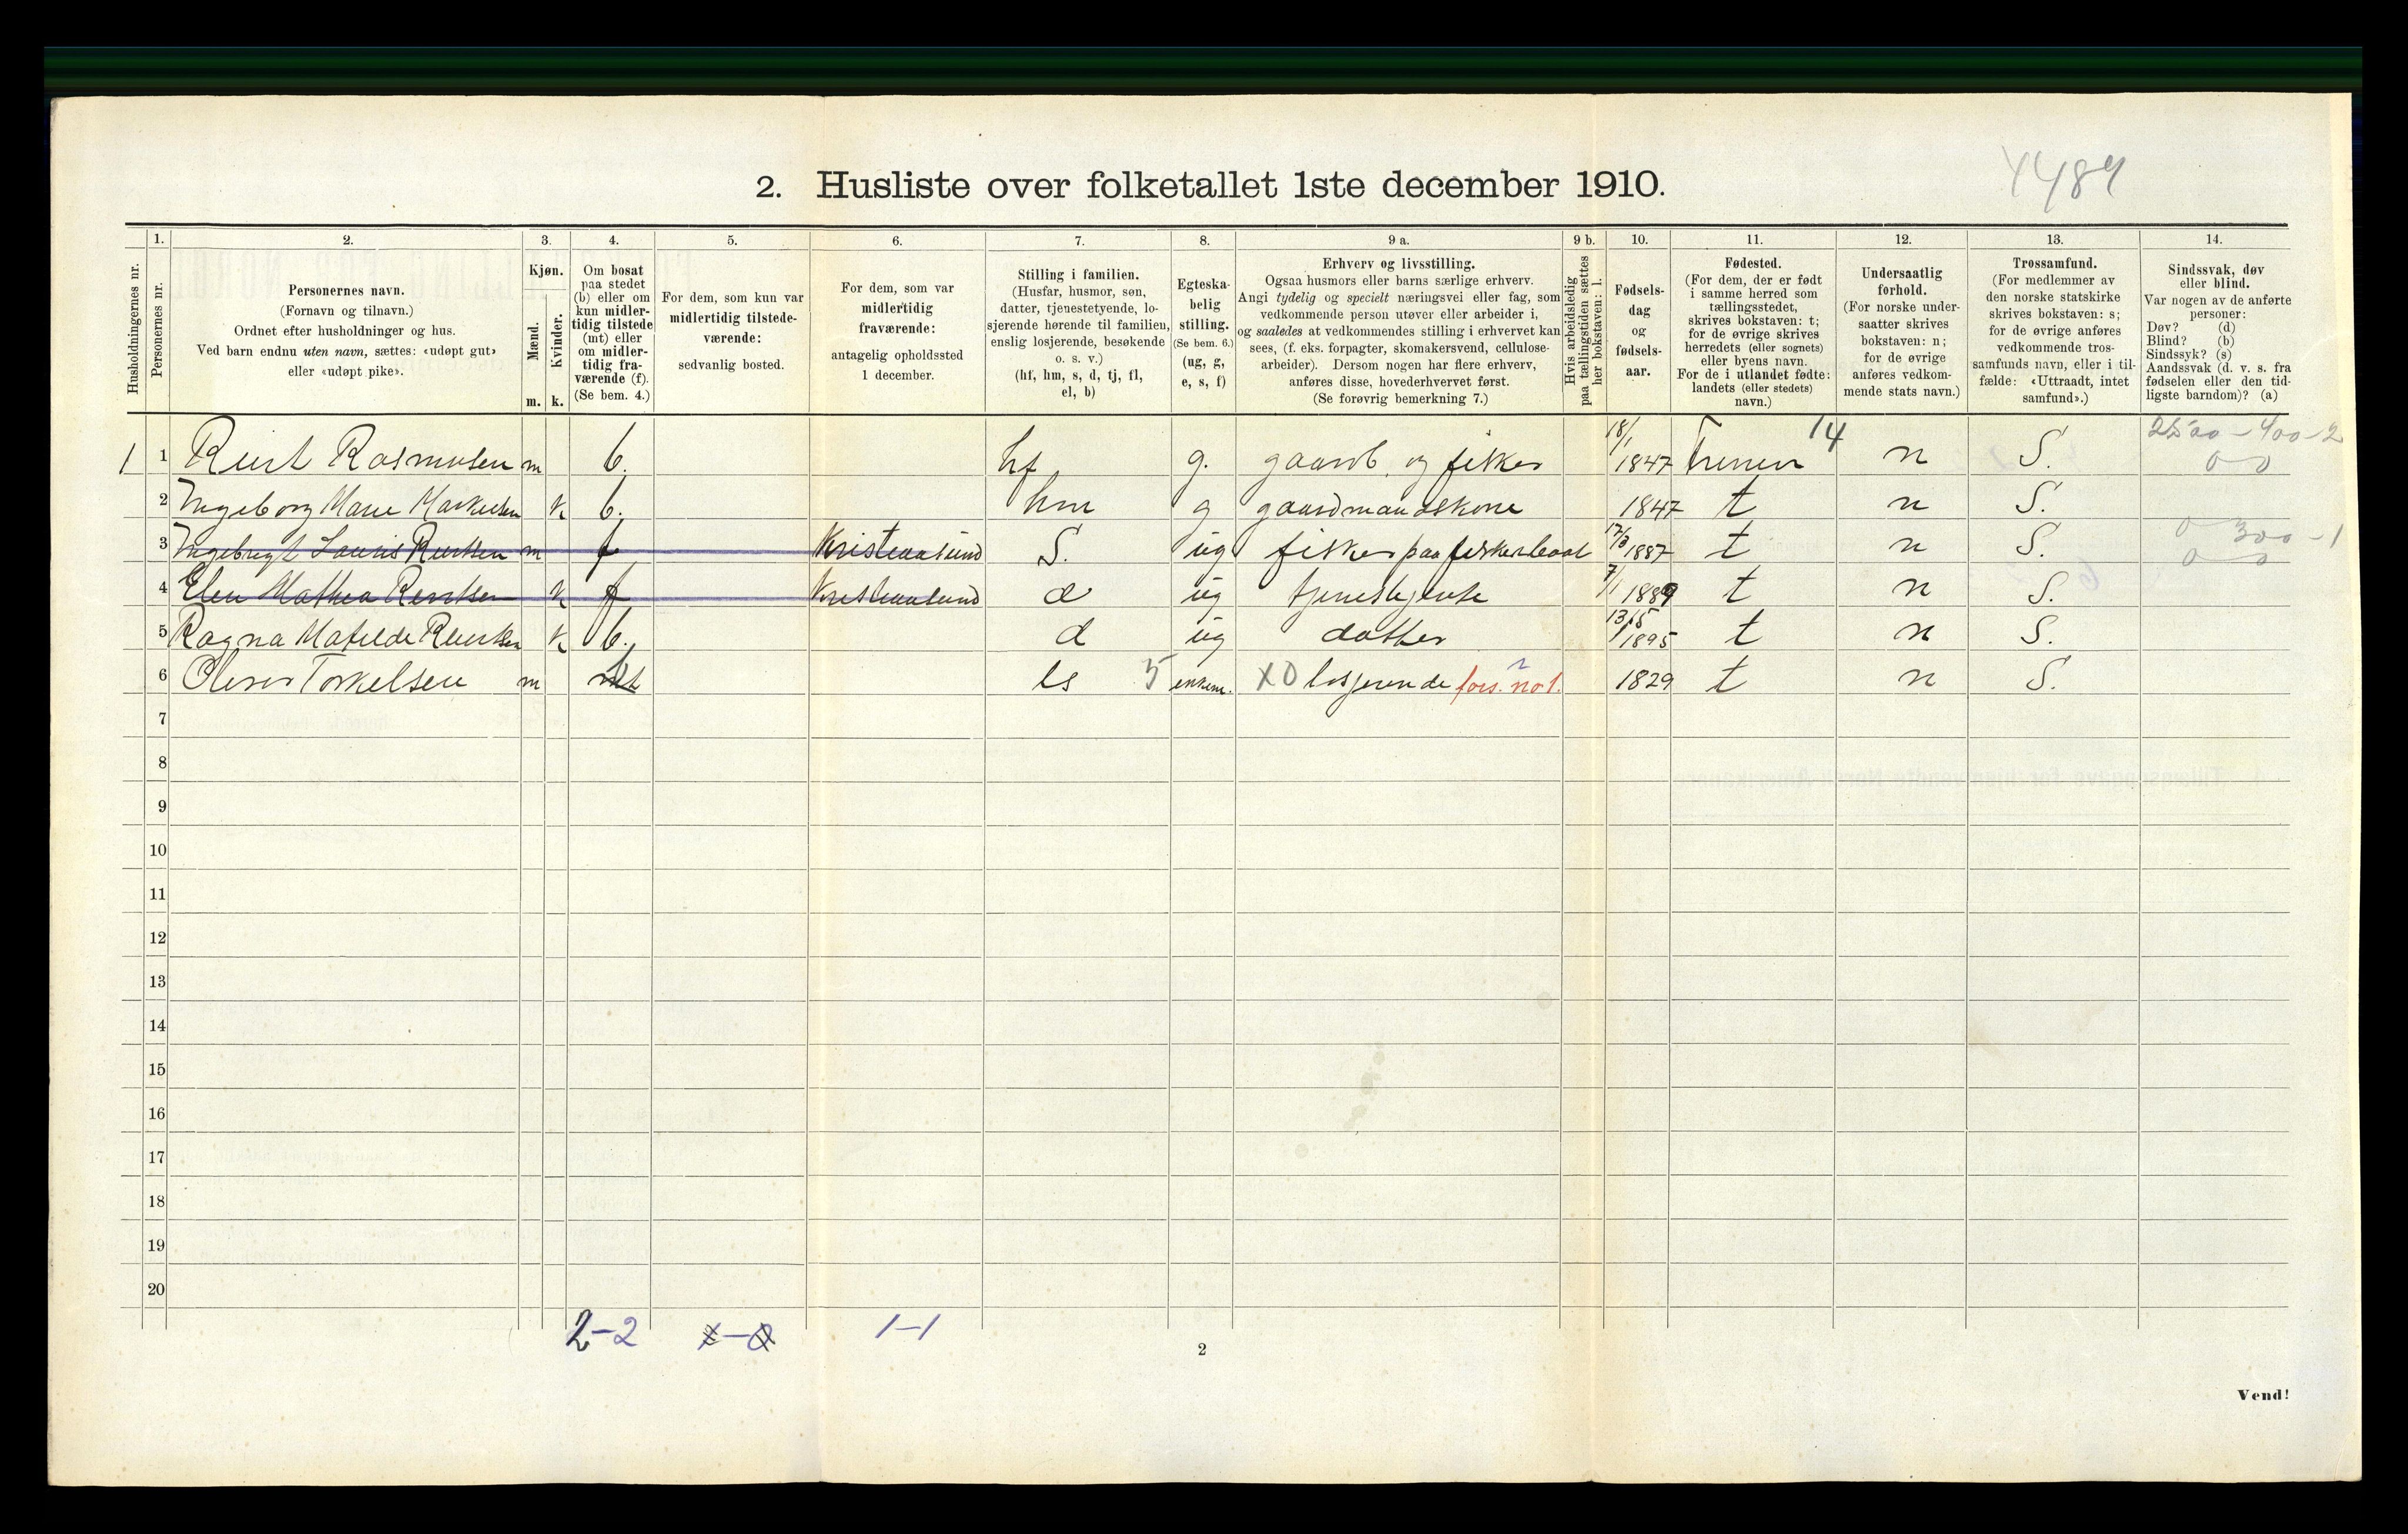 2. Husliste over folketallet 1ste december 1910.
4489
Husholdningernes nr.
1.
Personernes nr.
2.
Personernes navn.
(Fornavn og tilnavn.)
Ordnet efter husholdninger og hus.
Ved barn endnu uten navn, sættes: «udøpt gut»
eller «udøpt pike».
3.
Kjøn.
Mænd.
Kvinder.
m. k.
4.
Om bosat
paa stedet
(b) eller om
kun midler-
tidig tilstede
(mt) eller
om midler-
tidig fra-
værende (f).
(Se bem. 4.)
5.
For dem, som kun var
midlertidig tilstede-
værende:
sedvanlig bosted.
6.
For dem, som var
midlertidig
fraværende:
antagelig opholdssted
1 december.
7.
Stilling i familien.
(Husfar, husmor, søn,
datter, tjenestetyende, lo-
sjerende hørende til familien,
enslig losjerende, besøkende
o. s. v.)
(hf, hm, s, d, tj, fl,
el, b)
8.
Egteska-
belig
stilling.
(Se bem. 6.)
(ug, g,
e, s, f)
9 a.
Erhverv og livsstilling.
Ogsaa husmors eller barns særlige erhverv.
Angi tydelig og specielt næringsvei eller fag, som
vedkommende person utøver eller arbeider i,
og saaledes at vedkommendes stilling i erhvervet kan
sees, (f. eks. forpagter, skomakersvend, cellulose-
arbeider). Dersom nogen har flere erhverv,
anføres disse, hovederhvervet først.
(Se forøvrig bemerkning 7.)
9 b.
Hvis arbeidsledig
paa tællingstiden sættes
her bokstaven: l.
10.
Fødsels-
dag
og
fødsels-
aar.
11.
Fødested.
(For dem, der er født
i samme herred som
tællingsstedet,
skrives bokstaven: t;
for de øvrige skrives
herredets (eller sognets)
eller byens navn.
For de i utlandet fødte:
landets (eller stedets)
navn.)
12.
Undersaatlig
forhold.
(For norske under-
saatter skrives
bokstaven: n;
for de øvrige
anføres vedkom-
mende stats navn.)
13.
Trossamfund.
(For medlemmer av
den norske statskirke
skrives bokstaven: s;
for de øvrige anføres
vedkommende tros-
samfunds navn, eller i til-
fælde: «Uttraadt, intet
samfund».)
14.
Sindssvak, døv
eller blind.
Var nogen av de anførte
personer:
Døv? (d)
Blind? (b)
Sindssyk? (s)
Aandssvak (d. v. s. fra
fødselen eller den tid-
ligste barndom)? (a)
1 1 Rasmusen m b. hf g. gaardb. og fisker 18/1 1847 14 n S. 2500-400-2
0 0
2 Ingeborg Marie k b. hm g gaardmandskone 1847 t n S.
3 Ingebrigt m f Kristiansund S. ug fisker paa 1887 t n S. 0 300-1
0 0
4 Elen Mathea k f Kristiansund d ug tjenestejente 7/1 1889 t n S.
5 Ragna Matilde k b. d ug datter 13/5 1895 t n S.
6 Torkelsen m ls 5 enkem. X0 losjerende fors. no 1. 1829 t n S.
7
8
9
10
11
12
13
14
15
16
17
18
19
20
2-2 1-1
2
Vend!